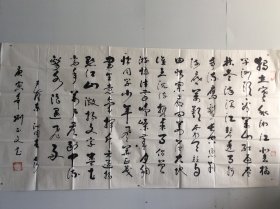 独立寒秋湘江北去橘
子洲头看万山红遍层
林尽染漫江碧透百舸
争流鹰击长空鱼翔浅
底万类霜天竞自
由怅寥廓问苍茫大地
谁主沉浮携来百侣曾
游忆往昔峥嵘岁月稠
恰同学少年风华正
茂书生意气挥斥方遒指
点江山激扬文字粪土
当年万户侯曾记否到中流
击水浪遏飞舟
毛泽东 沁园春 长沙
庚寅年 刘文